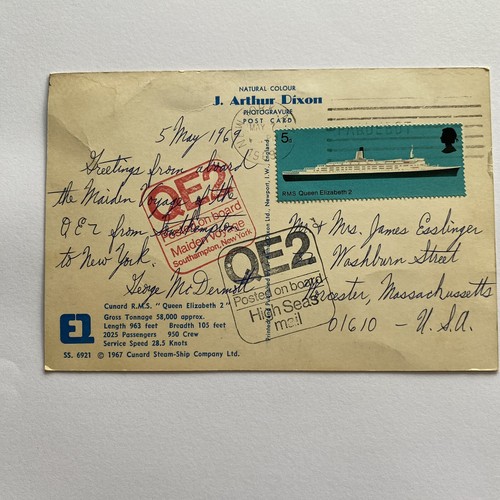 NATURAL COLOUR
J. Arthur Dixon
PHOTOGRAVURE
POST CARD
5 May 1969
Greetings from aboard
the Maiden Voyage of the
QE2 from Southampton
to New York.
George McDermott
QE2
Posted on board
Maiden Voyage
Southampton, New York
QE2
Posted on board
High Seas
mail
MAY
5d
RMS Queen Elizabeth 2
Mr & Mrs. James Esslinger
Washburn Street
Worcester, Massachusetts
01610 - U.S.A.
Ltd., Newport, I.W., England.
Cunard R.M.S. "Queen Elizabeth 2"
Gross Tonnage 58,000 approx.
Length 963 feet Breadth 105 feet
2025 Passengers 950 Crew
Service Speed 28.5 Knots
SS. 6921 © 1967 Cunard Steam-Ship Company Ltd.